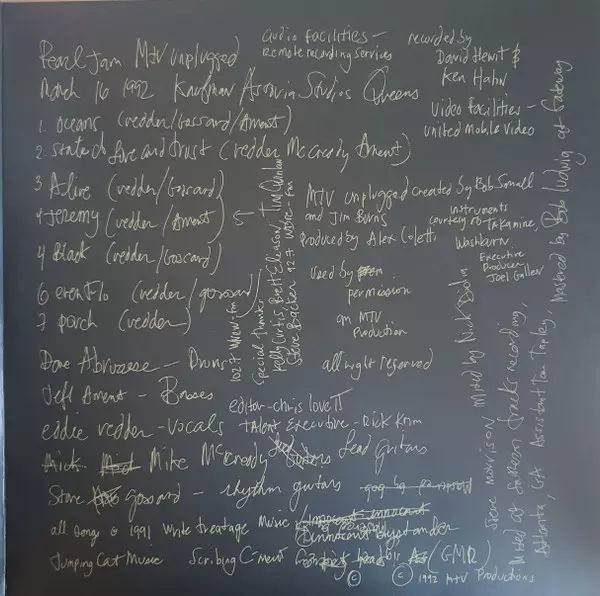 Pearl Jam MTV unplugged
March 16 1992 Kaufman Astoria Studios Queens
1. oceans (vedder/Gossard/Ament)
2. state of love and trust (vedder McCready Ament)
3 Alive (vedder/Gossard)
4 Jeremy (vedder/Ament)
5
4 Black (vedder/Gossard)
6 evenflo (vedder/gossard)
7 porch (vedder)
Dave Abruzzese - Drums
Jeff Ament - Basses
eddie vedder - vocals
Mike McCready Lead guitars
Steve gossard - rhythm guitars
all songs © 1991 write treatage Music / innocent bystander
Jumping Cat Music Scribing C-ment (GMR)
© © 1992 MTV Productions
audio facilities -
Remote recording services
recorded by
David Hewitt &
Ken Hahn
video facilities -
united mobile video
MTV unplugged created by Bob Small
and Jim Burns
produced by Alex Coletti
instruments
courtesy of Takamine,
Washburn
Executive
Producer
Joel Gallen
Used by
permission
an MTV
Production
all right reserved
editor - chris lovett
Talent Executive - Rick Krim
102.7 WNEW-fm
Special Thanks
Kelly Curtis Brett Eliason
Steve 92.7 WDRE-fm
Mixed by Nick
Steve morrison
Mixed at Southern tracks recording,
Atlanta, GA Assistant Tapley,
Mastered by Bob Ludwig at Gateway